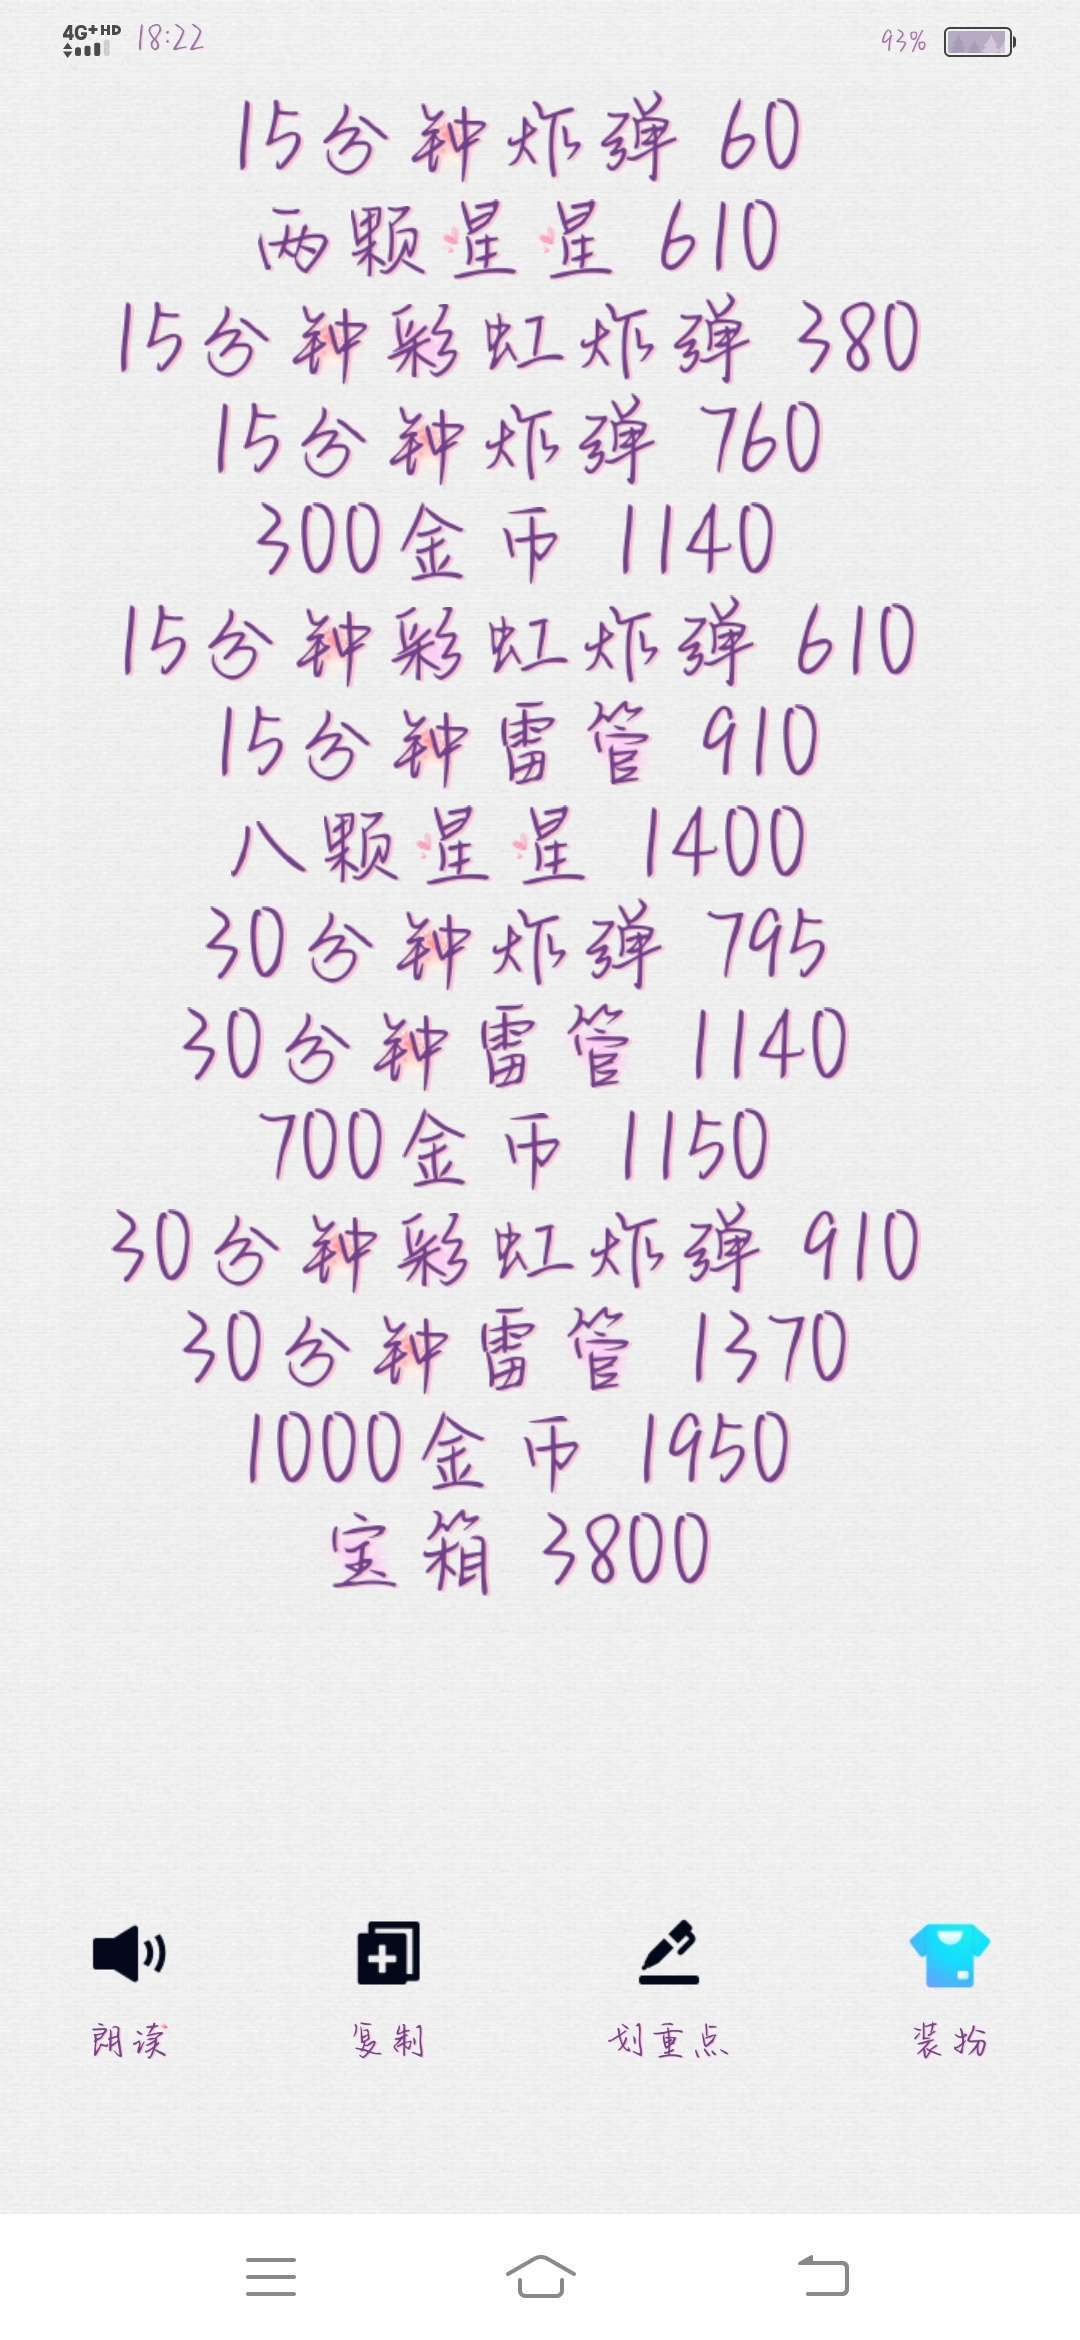 4G+ HD 18:22 93%
15分钟炸弹 60
两颗星星 610
15分钟彩虹炸弹 380
15分钟炸弹 760
300金币 1140
15分钟彩虹炸弹 610
15分钟雷管 910
八颗星星 1400
30分钟炸弹 795
30分钟雷管 1140
700金币 1150
30分钟彩虹炸弹 910
30分钟雷管 1370
1000金币 1950
宝箱 3800
朗读 复制 划重点 装扮